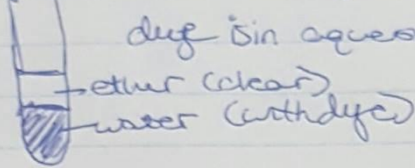 dye is in aqueo
ether (clear)
water (with dye)